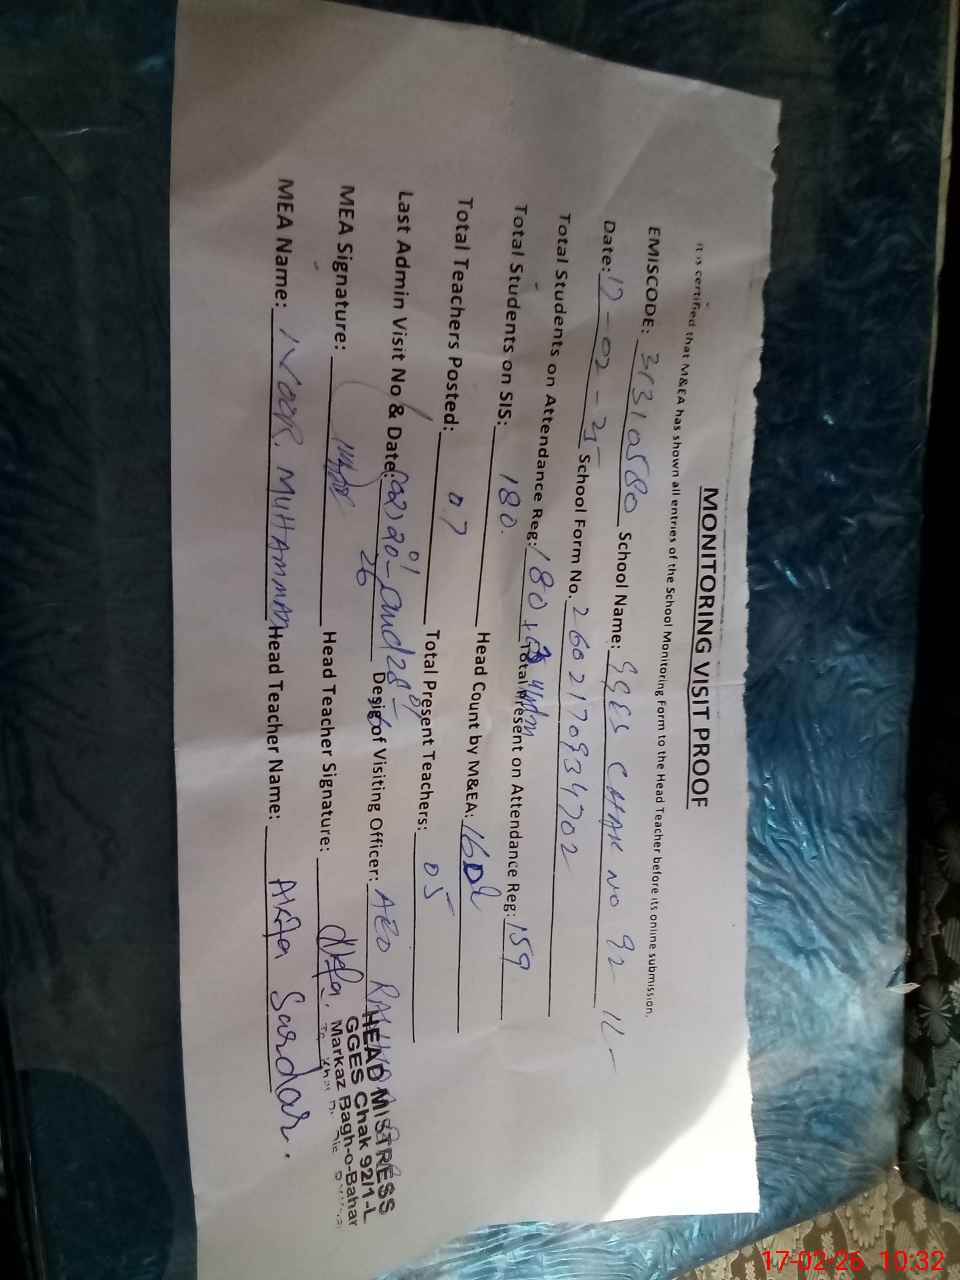 MONITORING VISIT PROOF
It is certified that M&EA has shown all entries of the School Monitoring Form to the Head Teacher before its online submission.
EMISCODE: 31310580 School Name: GGES CHAK NO 92 1L
Date: 17-02-25 School Form No. 2602170934702
Total Students on Attendance Reg: 180+ Total Present on Attendance Reg: 159
Total Students on SIS: 180 Head Count by M&EA: 160
Total Teachers Posted: 07 Total Present Teachers: 05
Last Admin Visit No & Date: (02) 20-01 and 28-01 26 Desig of Visiting Officer: AEO
MEA Signature: Head Teacher Signature:
MEA Name: NOOR MUHAMMAD Head Teacher Name: Alifa Sardar.
HEAD MISTRESS
GGES Chak 92/1-L
Markaz Bagh-o-Bahar
17-02-26 10:32